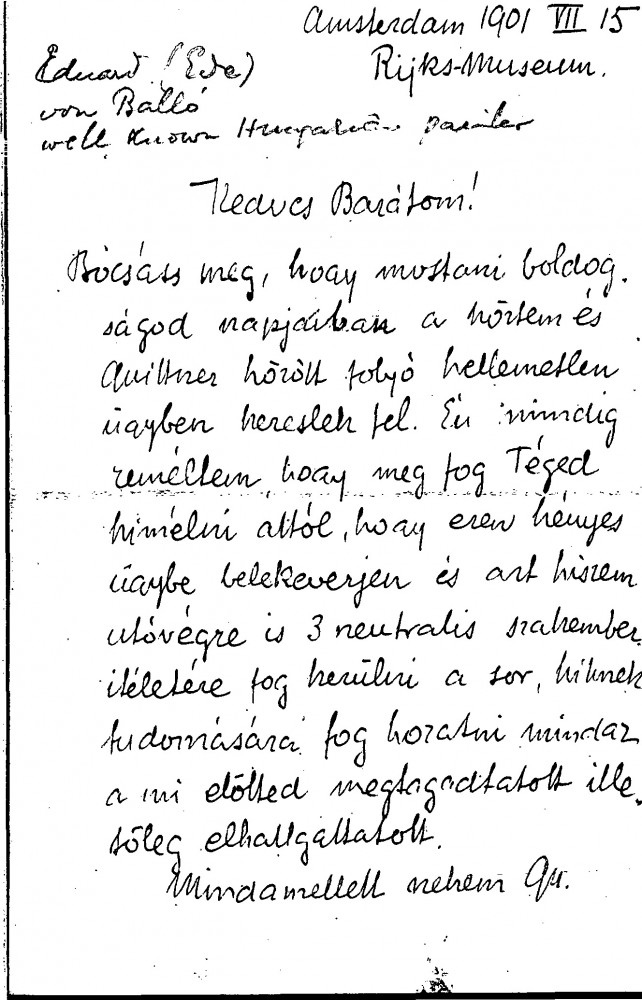 Amsterdam 1901 VII 15
Rijks-Museum.
Eduard (Ede)
von Balló
well known Hungarian painter
Kedves Barátom!
Bócsáss meg, hogy mostani boldog.
ságod napjaiban a köztem és
Quittner között folyó kellemetlen
ügyben kereslek fel. Én mindig
reméltem, hogy meg fog Téged
kimélni attól, hogy ezen kényes
ügybe belekeverjen és azt hiszem
utóvégre is 3 neutralis szakember
itéletére fog kerülni a sor, kiknek
tudomására fog hozatni mindaz
a mi előtted megtagadtatott ille.
tőleg elhallgattatott.
Mindamellett nekem Qu.